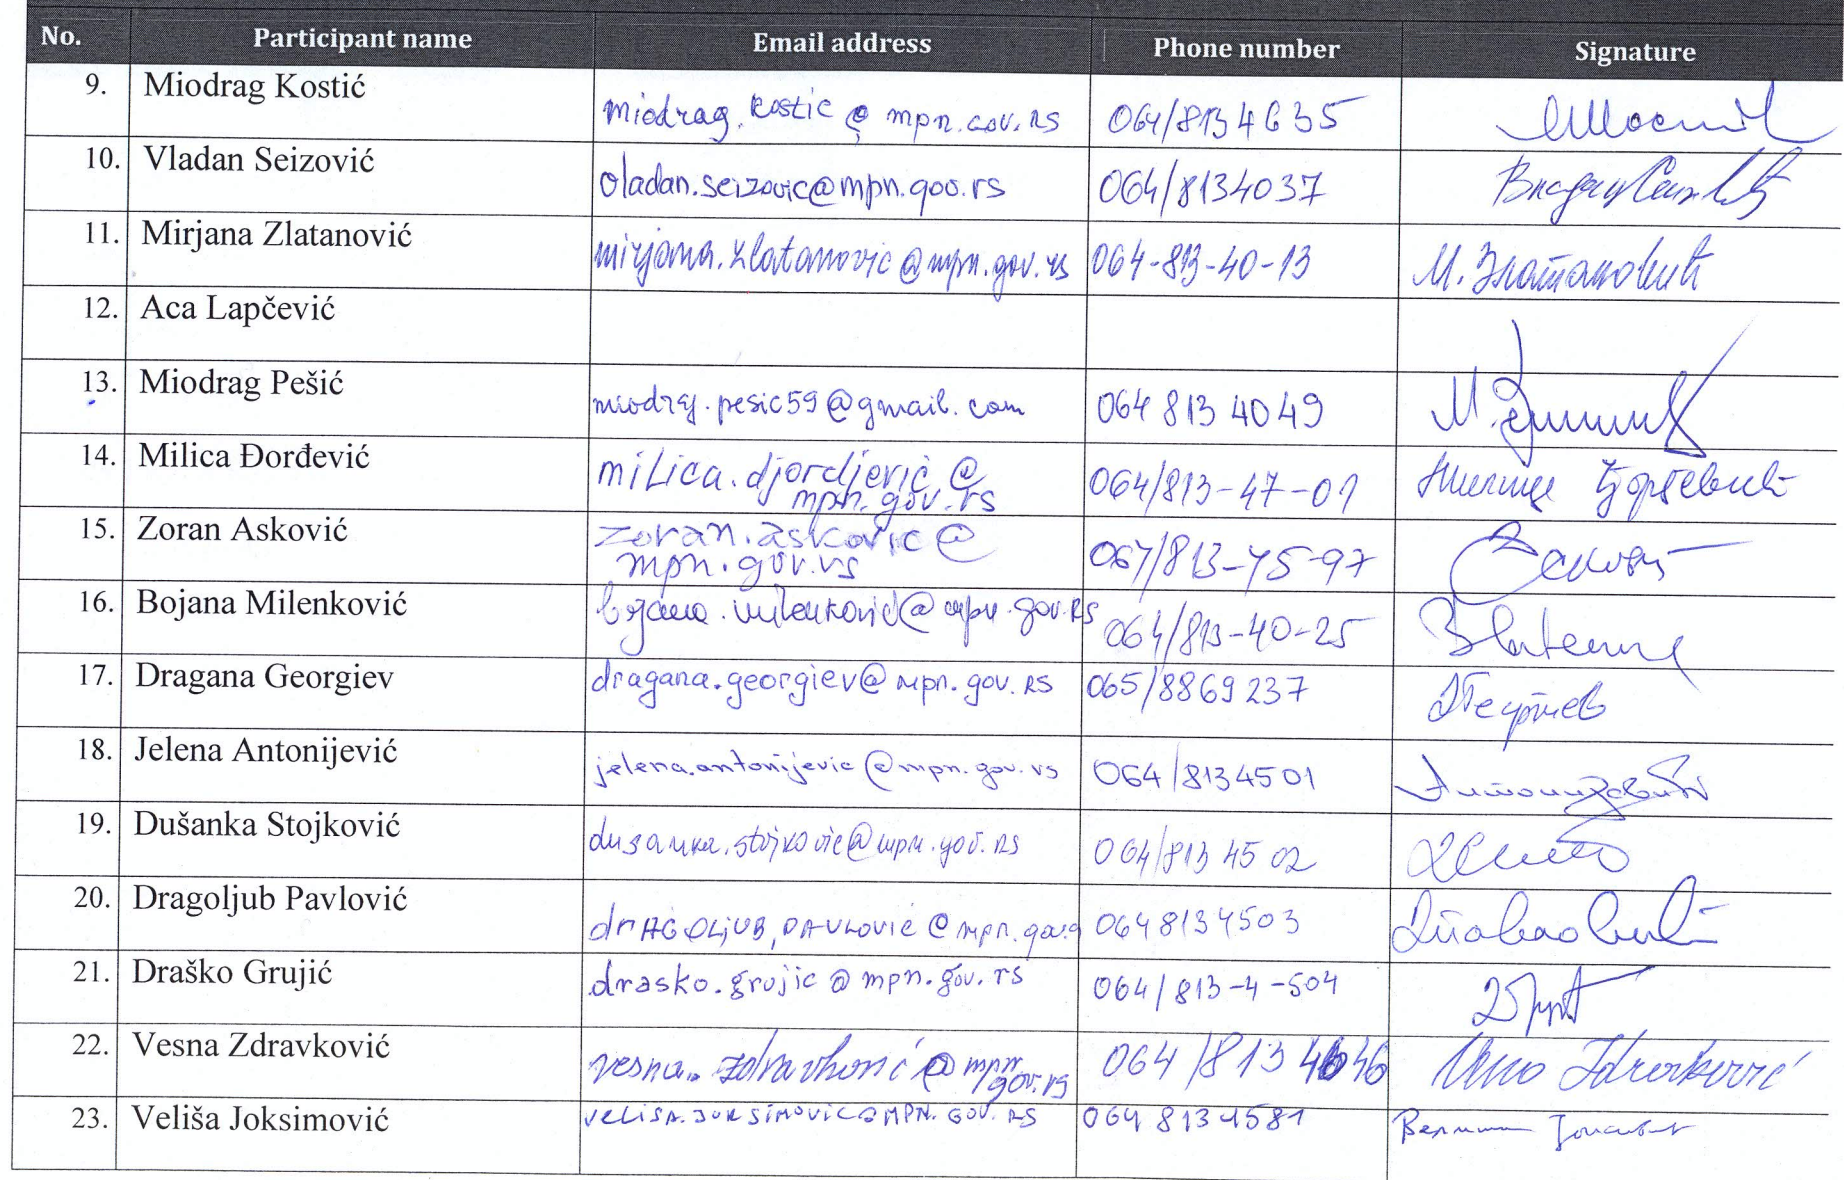 No. Participant name Email address Phone number Signature
9. Miodrag Kostić miodrag.kostic@mpn.gov.rs 064/8134635
10. Vladan Seizović vladan.seizovic@mpn.gov.rs 064/8134037
11. Mirjana Zlatanović mirjana.zlatanovic@mpn.gov.rs 064-813-40-13 М. Златановић
12. Aca Lapčević
13. Miodrag Pešić miodrag.pesic59@gmail.com 064 813 4049
14. Milica Đorđević milica.djordjević@ 064/813-47-01 Милица Ђорђевић
mpn.gov.rs
15. Zoran Asković zoran.askovic@
mpn.gov.rs
16. Bojana Milenković bojana.milenković@mpn.gov.RS 064/813-40-25
17. Dragana Georgiev dragana.georgiev@mpn.gov.RS 065/8869237
18. Jelena Antonijević jelena.antonijevic@mpn.gov.rs 064/8134501 Антонијевић
19. Dušanka Stojković dusanka.stojkovic@mpn.gov.RS 064/813 45 02
20. Dragoljub Pavlović drAGOLjUB.PAVLOVIC@mpn. 064 8134503
21. Draško Grujić drasko.grujic@mpn.gov.rs 064/813-4-504
22. Vesna Zdravković vesna.zdravković@mpn 064/813 4646 Zdravković
gov.rs
23. Veliša Joksimović VELISA.JOKSIMOVIC@MPN.GOV.RS 064 8134581